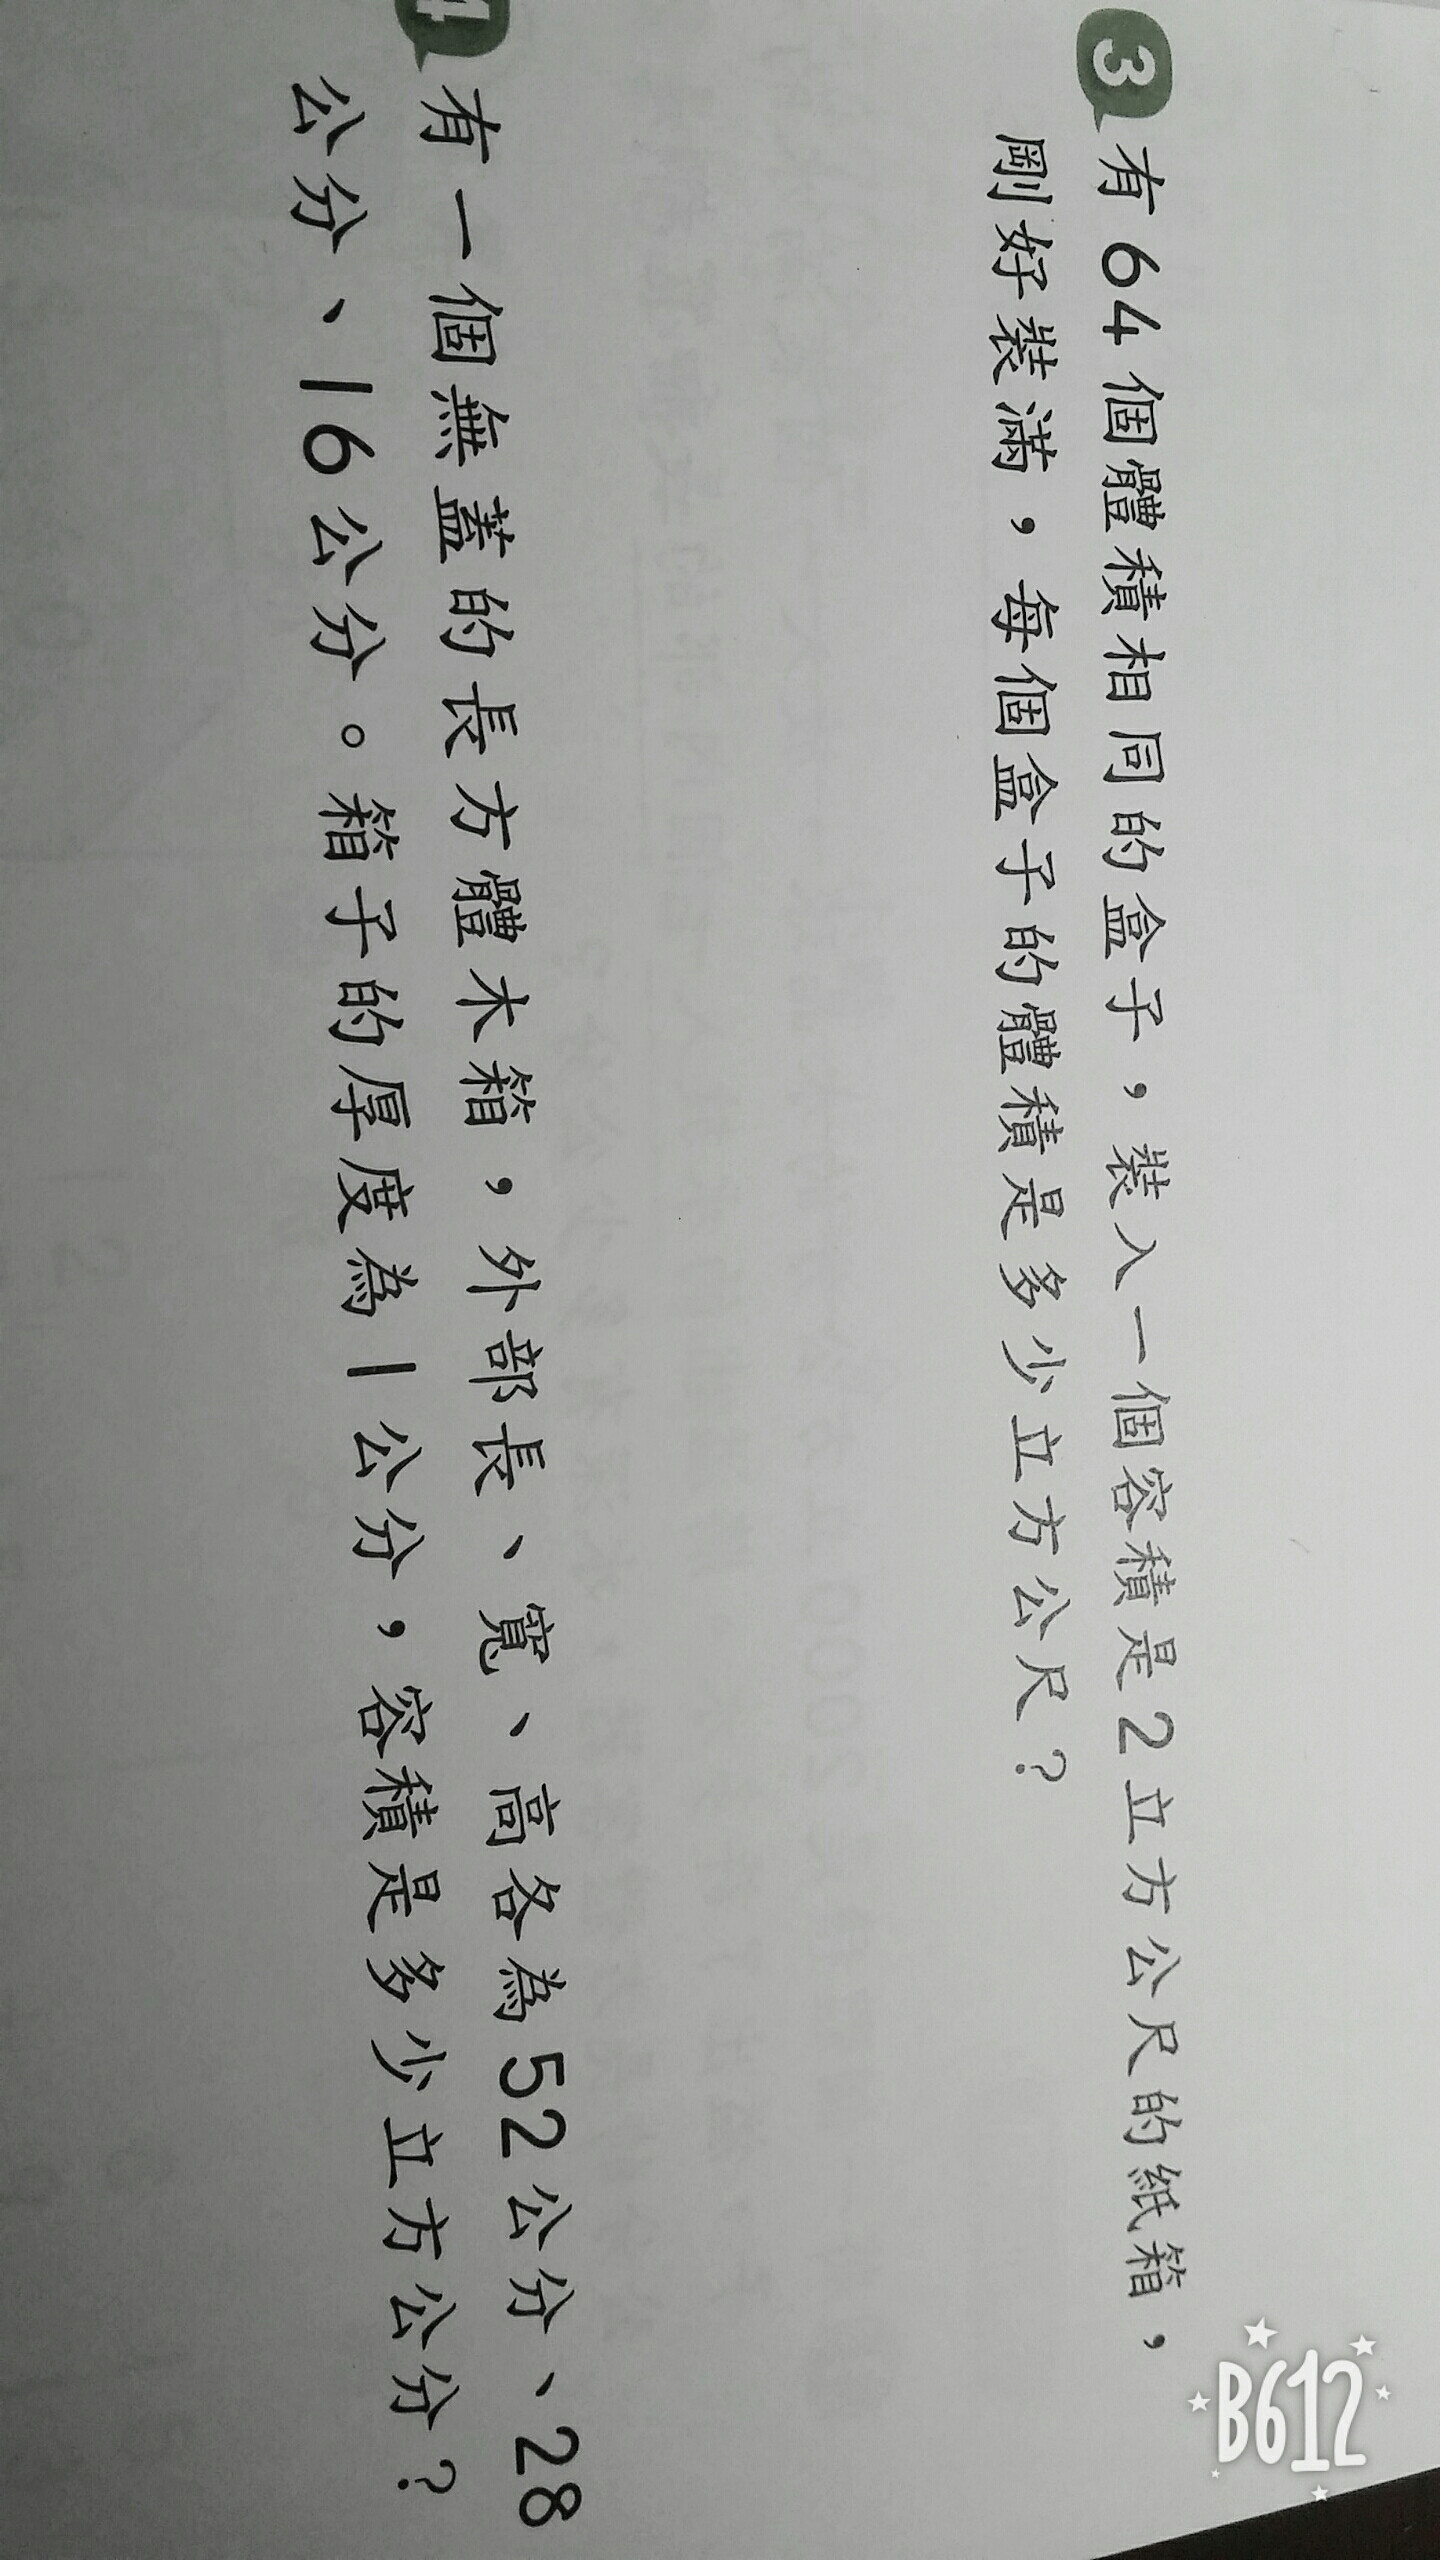 3 有64個體積相同的盒子，裝入一個容積是2立方公尺的紙箱，
剛好裝滿，每個盒子的體積是多少立方公尺？
4 有一個無蓋的長方體木箱，外部長、寬、高各為52公分、28
公分、16公分。箱子的厚度為1公分，容積是多少立方公分？
B612